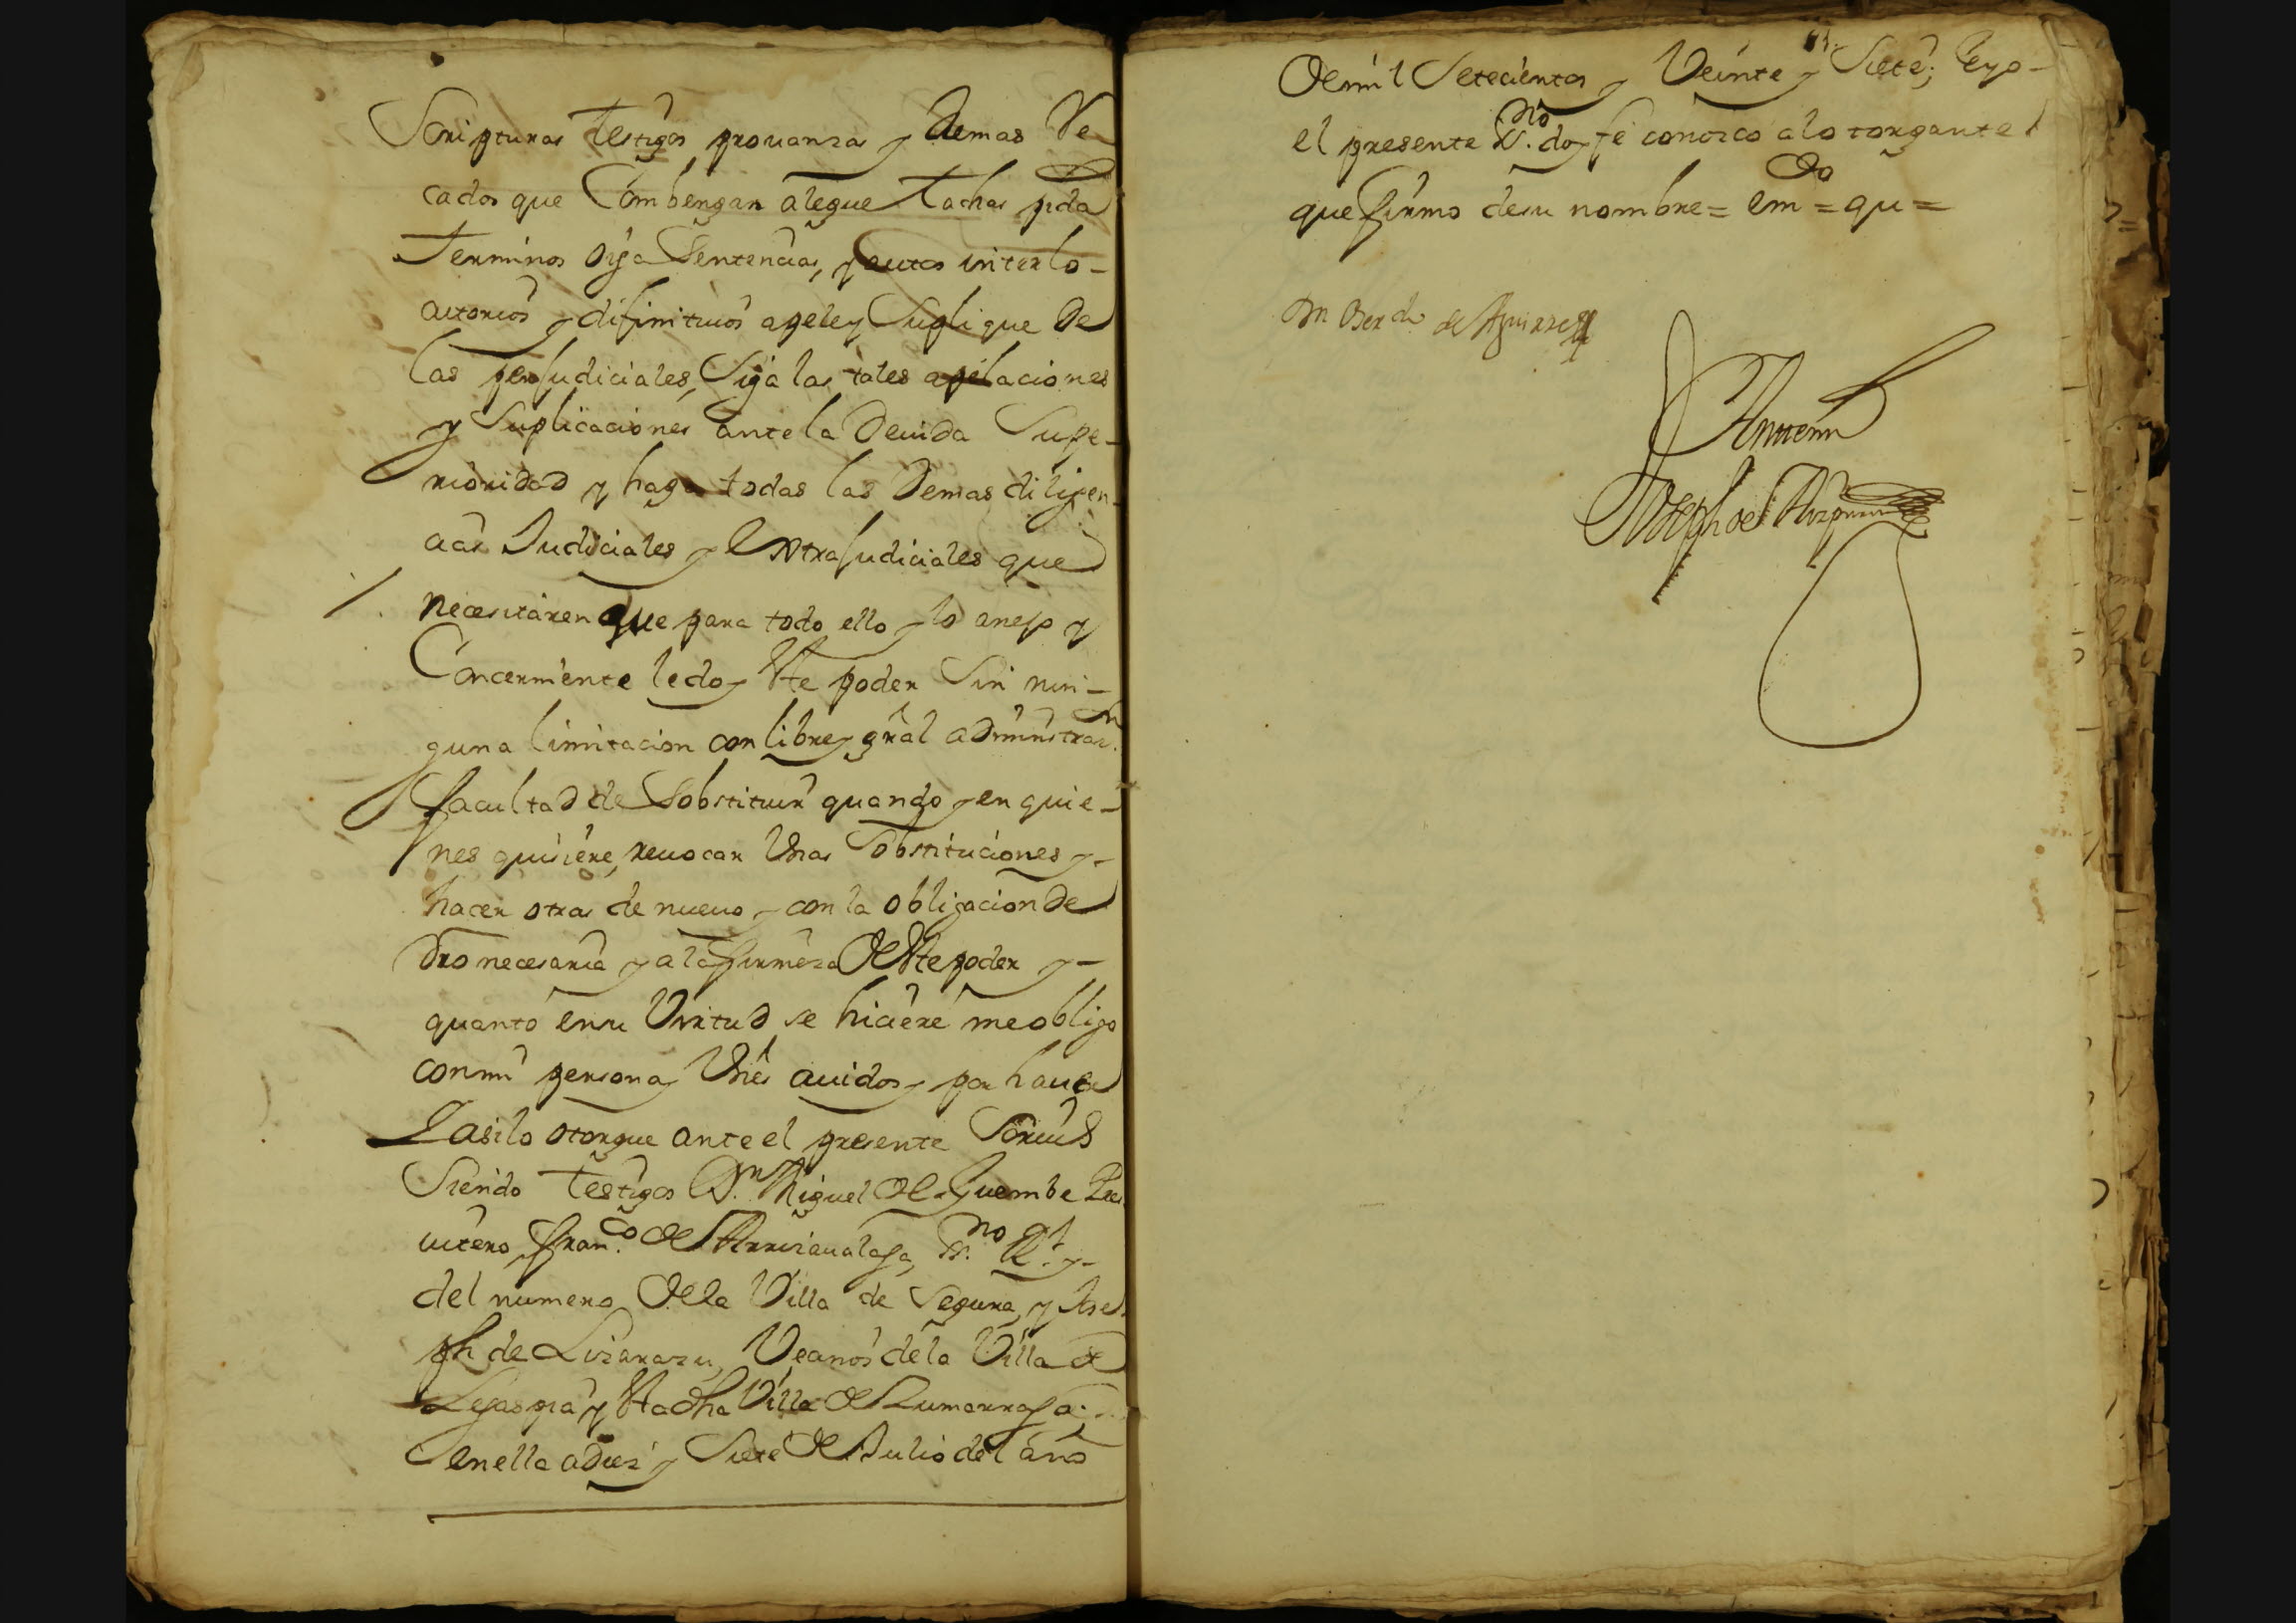 Scripturas testigos provanza y demas Re
cados que Combengan alegue tachas pida
terminos oyga Sentencias, y autos interlo-
cutorios y difinitivos apele y Suplique de
las perjudiciales, Siga las tales apelaciones
y Suplicaciones ante la devida Supe-
rioridad y haga todas las demas diligen-
cias Judiciales y Extrajudiciales que
necesitaren que para todo ello y lo anejo y
Concerniente le doy este poder Sin nin-
guna limitacion con libre y gral administraon.
facultad de Sobstituir quando y en quie-
nes quisiere, revocar Unas Sobstituciones y-
hacer otras de nuevo y con la obligacion de
dro necesaria y a la firmeza de este poder y-
quanto en su Virtud se hiciere me obligo
con mi persona y Vnes avidos y por haver
Y asi lo otorgue ante el presente Scriuo
Siendo testigos Dn. Miguel de Guembe Pres
vitero, Franco. de Arrizavalaga, essno. Rl. y-
del numero de la Villa de Segura, y Jose
ph de Lizarazu, Vecinos de la Villa de
Legaspia y esta dha Villa de Zumarraga;
en ella a diez y Siete de Julio del año
de mil Setecientos y Veinte y Siete; E yo-
el presente essno. doy fe conozco al otorgante
que firmo de su nombre = emdo = qu =
Dn Berdo de Aguirre
Ante mi
Joseph de Aizpuru